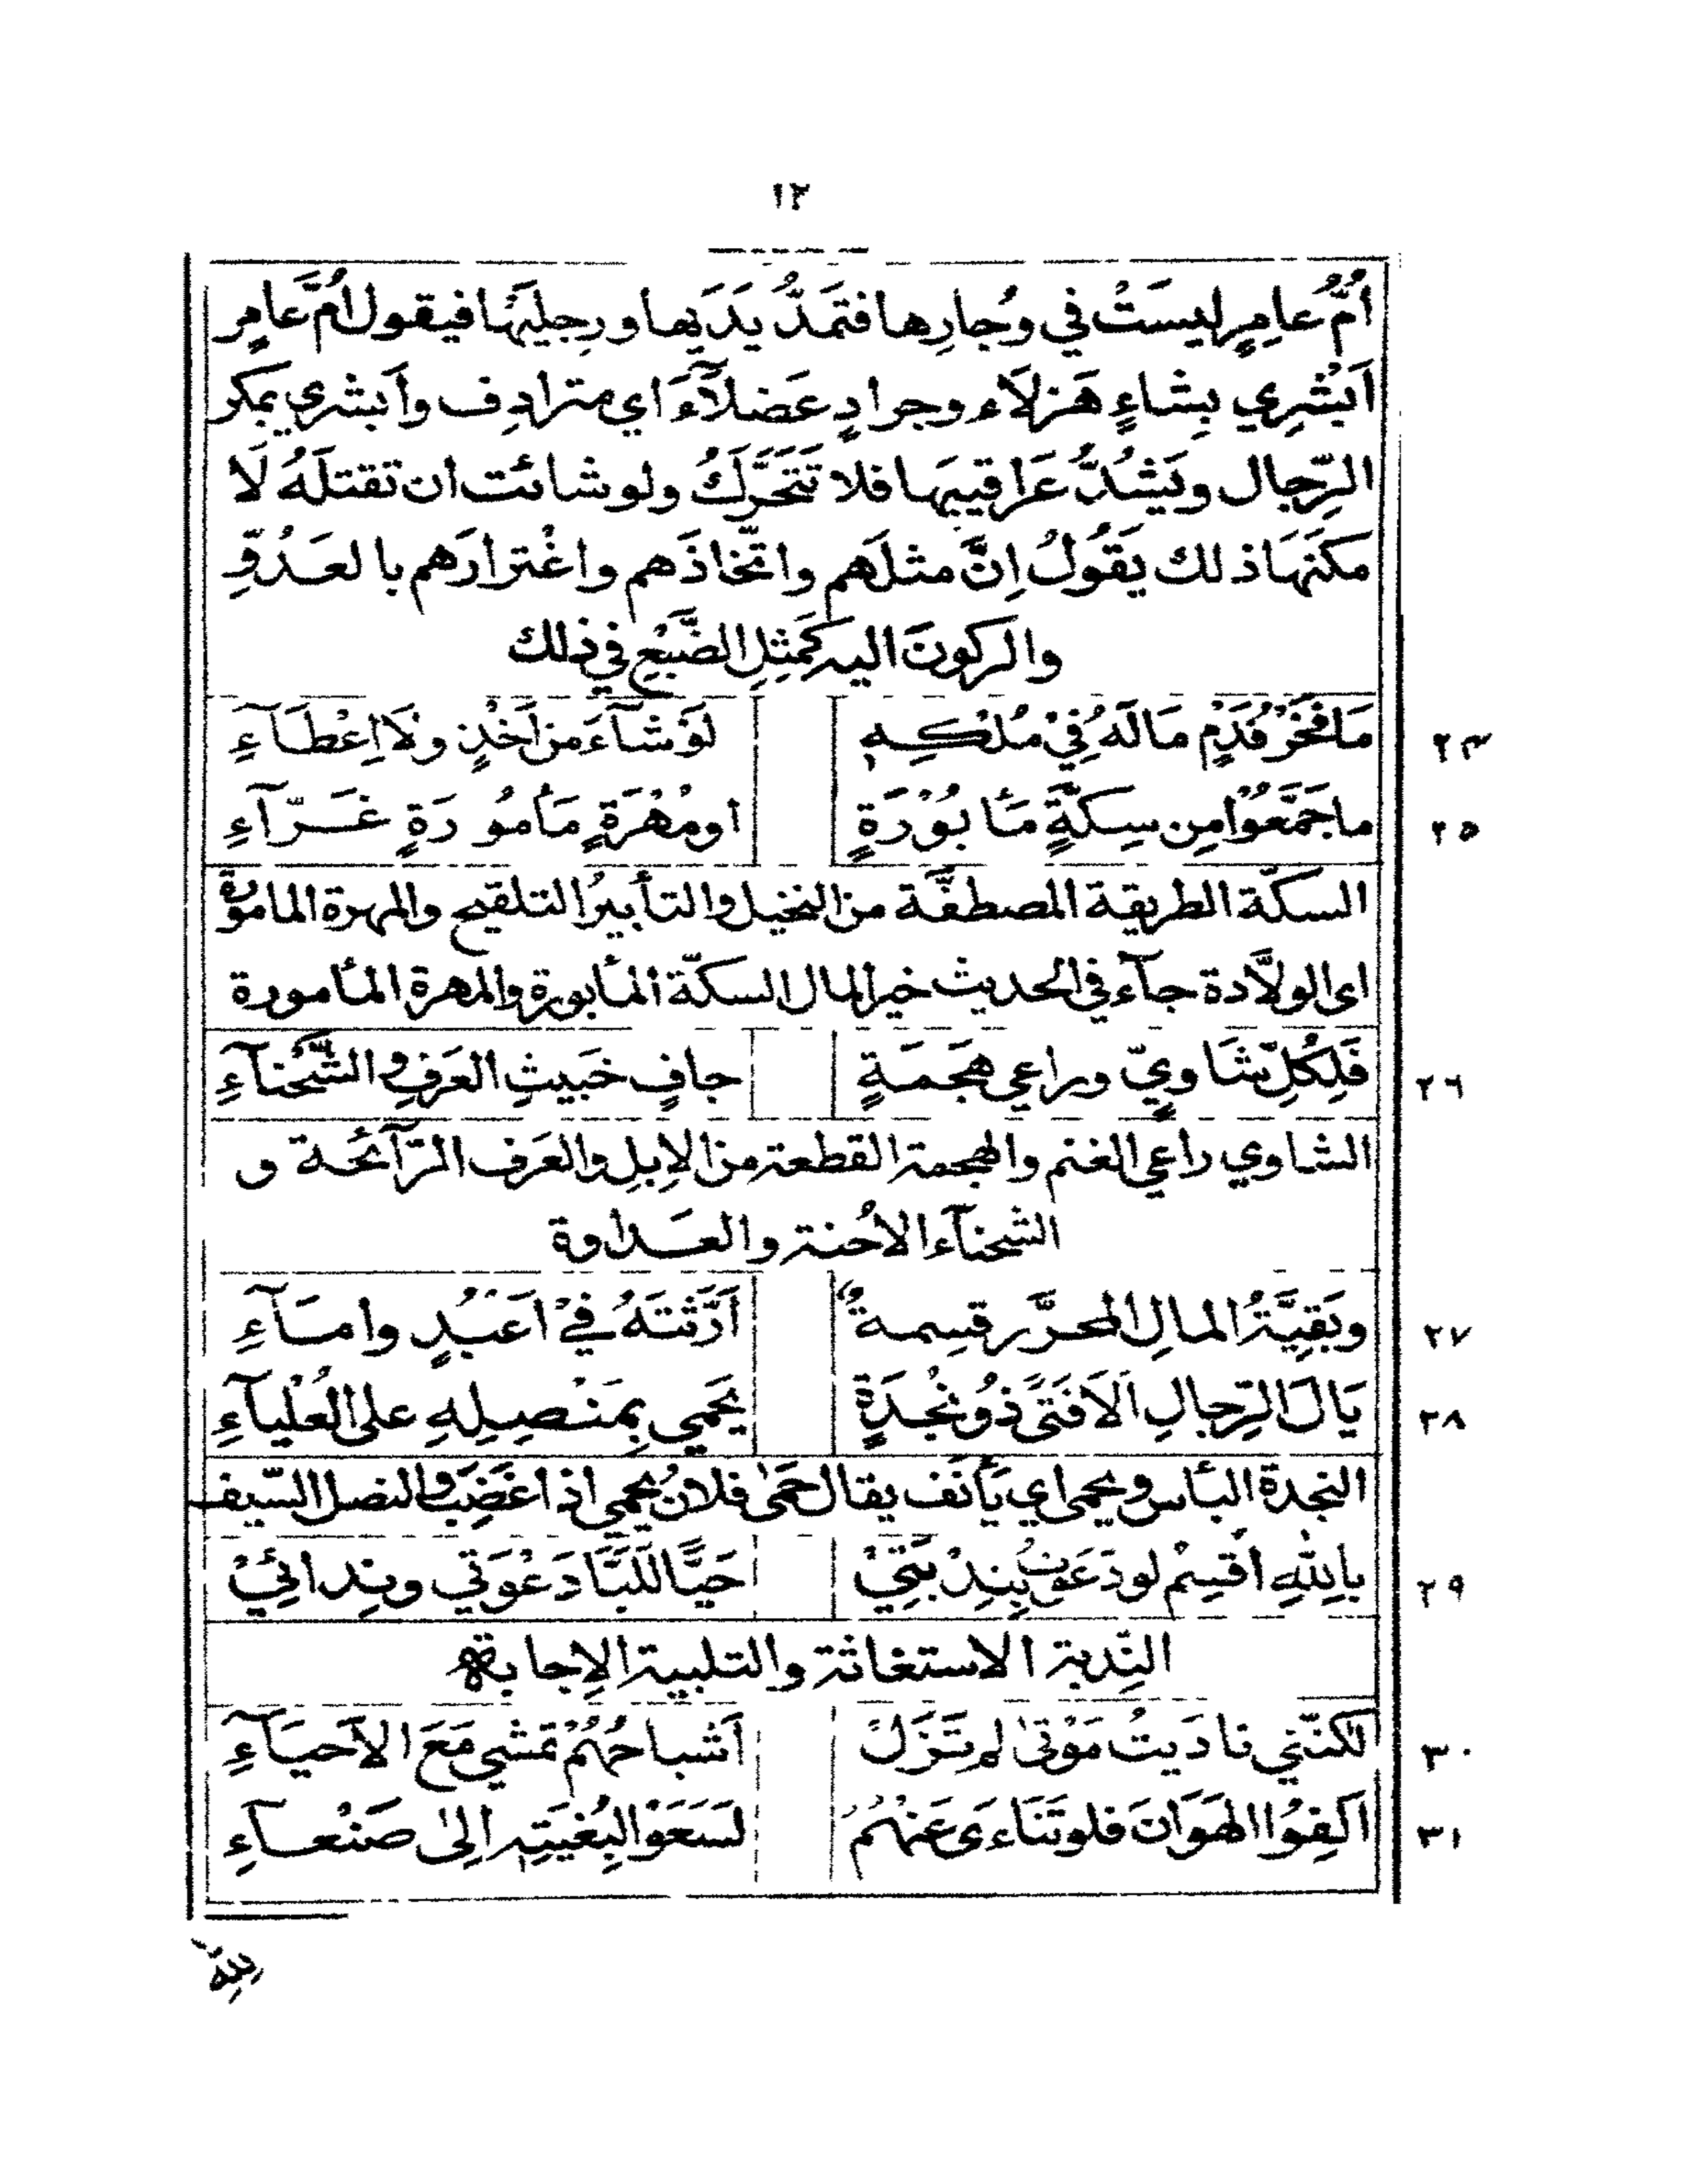 ١٢
أُمُّ عامِرٍ ليسَتْ في وُجارِها فتَمَدُّ يدَيها ورِجلَيْها فيقول أمَّ عامِرٍ
اَبْشِرِي بِشاءٍ هَزلَاء وجرادٍ عَضلآءَ اي مترادِف وأبشري بمكر
الرِّجال ويَشُدُّ عَراقيبهَا فلا تَتَحَرَّكُ ولو شائت ان تقتلَهُ لَا
مكنَهَا ذلك يَقُولُ اِنَّ مثلَهم واتّخاذَهم واغْترارَهم بالعَدُوِّ
والركونَ اليه كَمثِلِ الضَّبْعِ في ذلك
٢٤ مَا فخَرُ فَدْمٍ مَالَهُ فِيْ مُلْكِهِ لَوْ شآءَ من أَخْذٍ ولَا اِعْطَآءِ
٢٥ ما جَمَّعُوْا مِن سِكَّةٍ مَأبُوْرَةٍ او مُهْرَةٍ مَأمُورَةٍ غَرّآءِ
السكّة الطريقة المصطفَّة من النخيل والتأبيرُ التلقيح والمهرة المامورة
اى الولاَّدة جآء في الحديث خير المال السكّة المأبورة والمهرة المأمورة
٢٦ فَلِكُلِّ شَاوِيٍّ وراعي هَجَمَةٍ جافٍ خَبيثِ العَرَفِ والشَّحْنآءِ
الشاوي راعي الغنم والهجمة القطعة من الإبِلِ والعَرف الرّآئحة و
الشحنآء الاُحنة والعداوة
٢٧ وبَقِيَّةُ المالِ المحرَّرِ قسِمةٌ اَرَّثتَهُ فيْ اَعبُدٍ وامآءِ
٢٨ يَالَ الرِّجالِ اَلَا فَتىً ذُو نُجدَةٍ يَحمي بِمَنْصِلِهِ على العُلْيآءِ
النجدة البأس ويحمى اي يَأنَف يقال حَمىٰ فلانٌ يحمي اذا غَضِبَ والنصل السّيف
٢٩ بِاللهِ اُقسِمُ لو دَعَوتُ بِنِدْبَتِيْ حَيًّا لَلَبَّا دَعْوَتي ونِدائِيْ
النِّدبة الاستغاثة والتلبية الإجابة
٣٠ لكنّني نادَيتُ مَوْتىٰ لم تَزَلْ اَشباحُهُمْ تمشي مَعَ الأَحيَآءِ
٣١ اَلِفوُا الهَوَانَ فلو تَنَاءَى عَنْهُمُ لسَعَوْا لبُغيَتِهِ اِلىٰ صَنْعآءِ